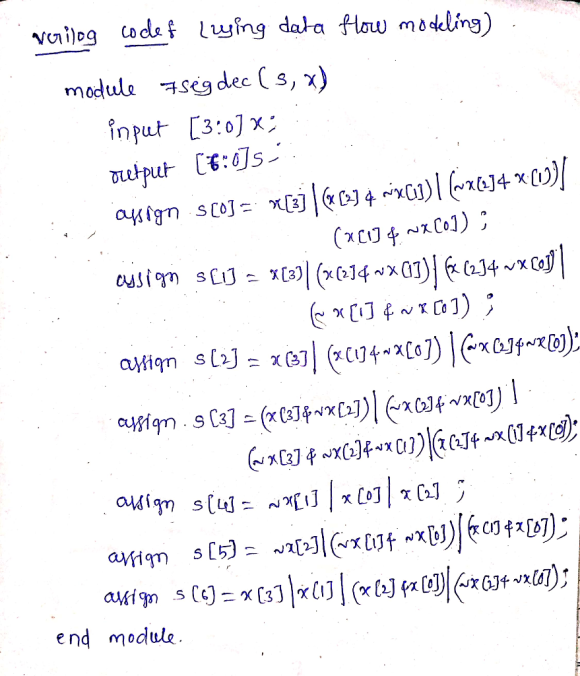 verilog codes (using data flow modeling)
module 7segdec (s, x)
input [3:0] x;
output [6:0] s;
assign s[0] = x[3] | (x[2] & ~x[1]) | (~x[2] & x[1]) |
(x[1] & ~x[0]) ;
assign s[1] = x[3] | (x[2] & ~x[1]) | (x[2] & ~x[0]) |
(~x[1] & ~x[0]) ;
assign s[2] = x[3] | (x[1] & ~x[0]) | (~x[2] & ~x[0]);
assign s[3] = (x[3] & ~x[2]) | (~x[2] & ~x[0]) |
(~x[3] & ~x[2] & ~x[1]) | (x[2] & ~x[1] & x[0]);
assign s[4] = ~x[1] | x[0] | x[2] ;
assign s[5] = ~x[2] | (~x[1] & ~x[0]) | (x[1] & x[0]);
assign s[6] = x[3] | x[1] | (x[2] & x[0]) | (~x[2] & ~x[0]);
end module.